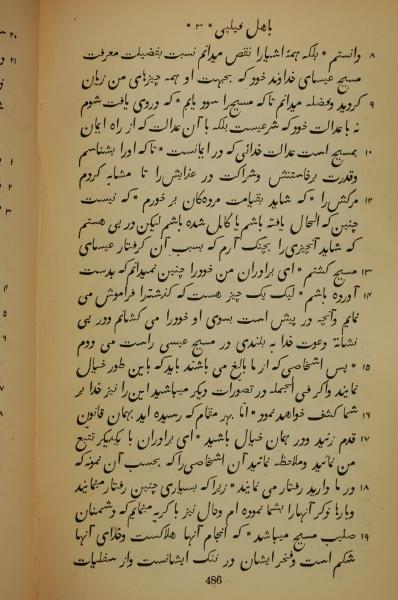 باهل فیلپی * ۳ *
۸ دانستم * بلکه همهٔ اشیارا نقص میدانم نسبت بفضیلت معرفت
مسیح عیسای خداوند خود که بجهت او همه چیزهای من زیان
۹ کردید وفضله میدانم تا که مسیح را سود یابم * که در وی یافت شوم
نه با عدالت خود که شرعیست بلکه با آن عدالت که از راه ایمان
۱۰ بمسیح است عدالت خدائی که در ایمانست * تا که اورا بشناسم
وقدرت برخاستنش وشراکت در عذابش را تا مشابه کردم
۱۲ مرکش را * که شاید بقیامت مردهکان بر خورم * که نیست
چنین که الحال یافته باشم یا کامل شده باشم لیکن در پی هستم
که شاید آنچیزی را بچنک آرم که بسبب آن کرفتار عیسای
۱۳ مسیح کشتم * ای برادران من خودرا چنین نمیدانم که بدست
۱۴ آورده باشم * لیک یک چیز هست که کذشته را فراموش می
نمایم وآنچه در پیش است بسوی او خودرا می کشانم ودر پی
نشانهٔ دعوت خدا به بلندی در مسیح عیسی راست می دوم
۱۵ * پس اشخاصی که از ما بالغ می باشند باید که باین طور خیال
نمایند واکر فی الجمله در تصورات دیکر میباشید این را نیز خدا بر
۱۶ شما کشف خواهد نمود * اما بهر مقام که رسیده اید بهمان قانون
۱۷ قدم زنید ودر همان خیال باشید * ای برادران با یکدیکر تتبع
من نمائید وملاحظه نمائید آن اشخاصی را که بحسب آن نمونه که
۱۸ در ما دارید رفتار می نمایند * زیرا که بسیاری چنین رفتار مینمایند
وبارها ذکر آنهارا بشما نموده ام وحال نیز با کریه میکویم که دشمنان
۱۹ صلیب مسیح میباشند * که انجام آنها هلاکست وخدای آنها
شکم است وفخر ایشان در ننک ایشانست واز سفلیات
486